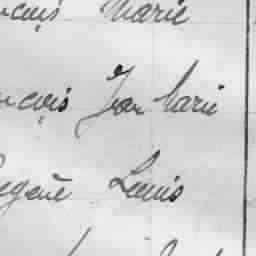 nçois Marie
nçois Jean Marie
Eugène Louis